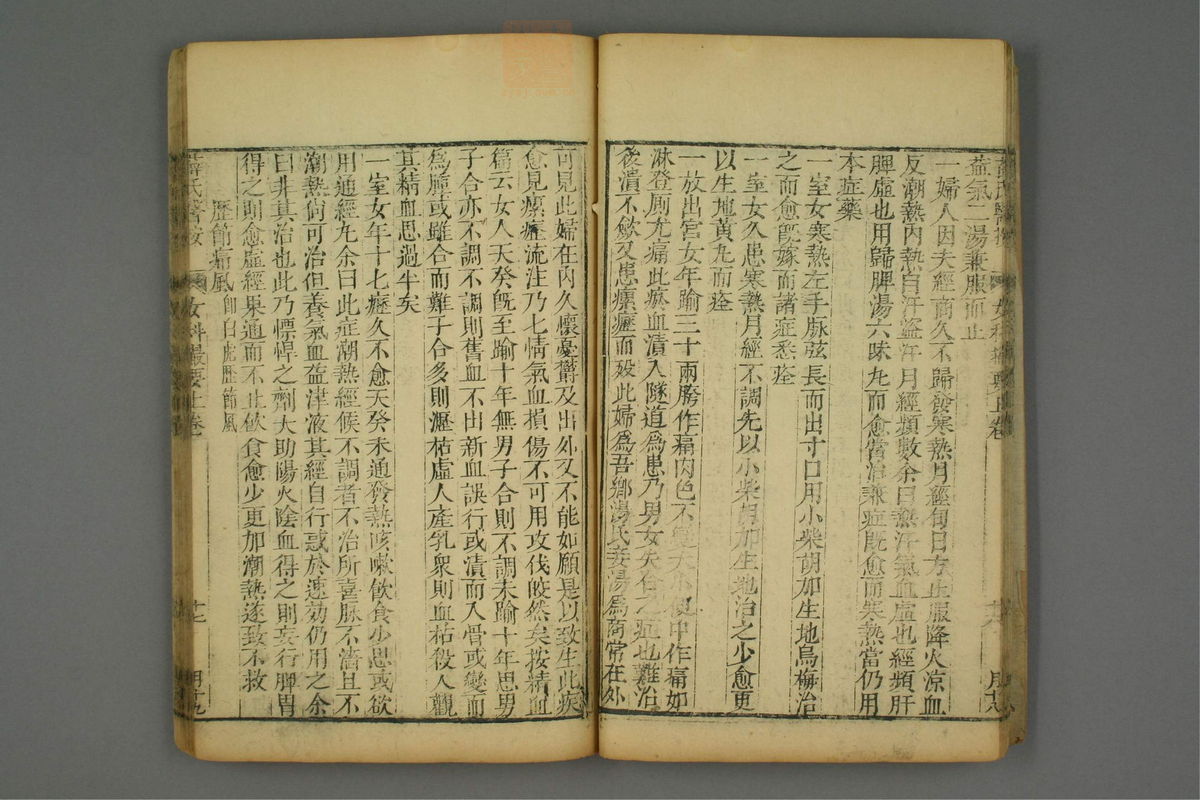 薛氏醫按 女科撮要上卷
益氣二湯兼服而止
一婦人因夫經商久不歸發寒熱月經旬日方止服降火涼血
反潮熱內熱自汗盜汗月經頻數余曰熱汗氣血虛也經頻肝
脾虛也用歸脾湯六味丸而愈嘗治兼症既愈而寒熱當仍用
本症藥
一室女寒熱左手脉弦長而出寸口用小柴胡加生地烏梅治
之而愈既嫁而諸症悉痊
一室女久患寒熱月經不調先以小柴胡加生地治之少愈更
以生地黃丸而痊
一放出宮女年踰三十兩胯作痛肉色不變大小便中作痛如
淋登厠尤痛此瘀血漬入隧道為患乃男女失合之症也難治
後潰不歛又患瘰癧而歿此婦為吾鄉湯氏妾湯為商常在外
可見此婦在內久懷憂欝及出外又不能如願是以致生此疾
愈見瘰癧流注乃七情氣血損傷不可用攻伐皎然矣按精血
篇云女人天癸既至踰十年無男子合則不調未踰十年思男
子合亦不調不調則舊血不出新血誤行或漬而入骨或變而
為腫或雖合而難子合多則瀝枯虛人產乳衆則血枯殺人觀
其精血思過半矣
一室女年十七癧久不愈天癸未通發熱咳嗽飲食少思或欲
用通經丸余曰此症潮熱經候不調者不治所喜脉不濇且不
潮熱尚可治但養氣血益津液其經自行惑於速効仍用之余
曰非其治也此乃慓悍之劑大助陽火陰血得之則妄行脾胃
得之則愈虛經果通而不止飲食愈少更加潮熱遂致不救
歷節痛風即白虎歷節風
薛氏醫按 女科撮要上卷